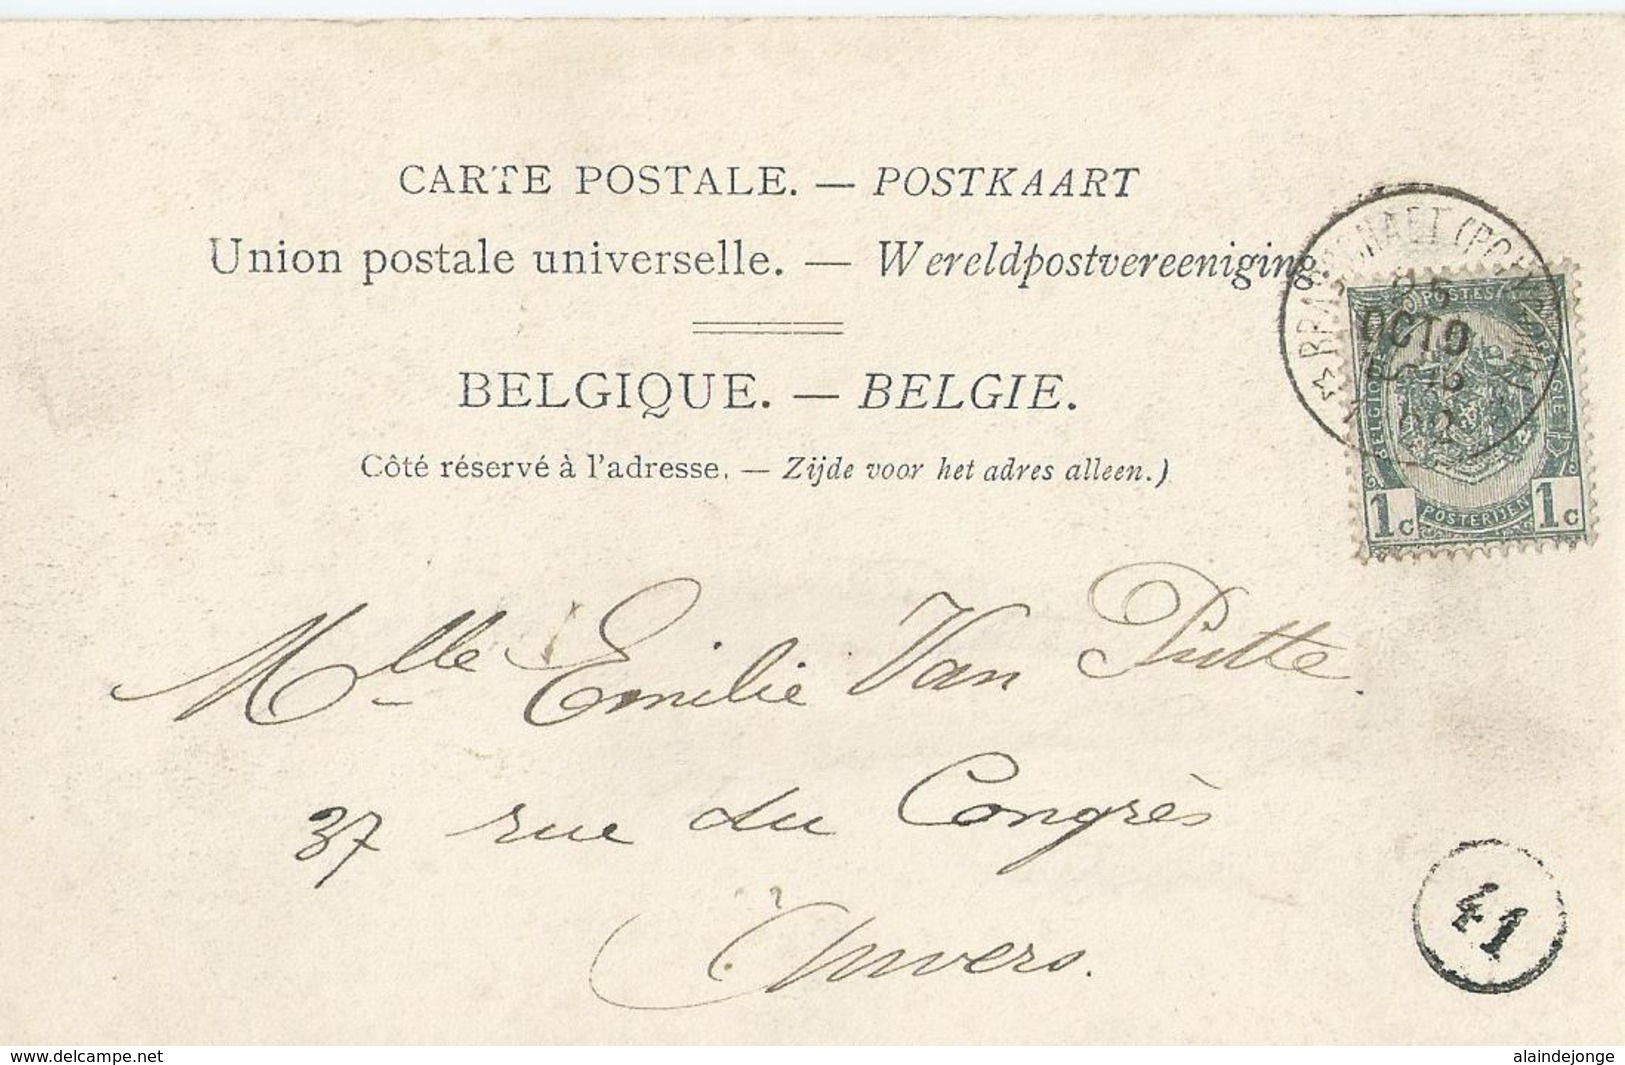 CARTE POSTALE. — POSTKAART
Union postale universelle. — Wereldpostvereeniging.
BELGIQUE. — BELGIE.
Côté réservé à l'adresse. — Zijde voor het adres alleen.)
OCTO
POSTES
BELGIQUE
BELGIË
POSTERIJEN
1c 1c
Mlle Emilie Van Putte.
37 rue du Congrès
Anvers.
41
www.delcampe.net
alaindejonge